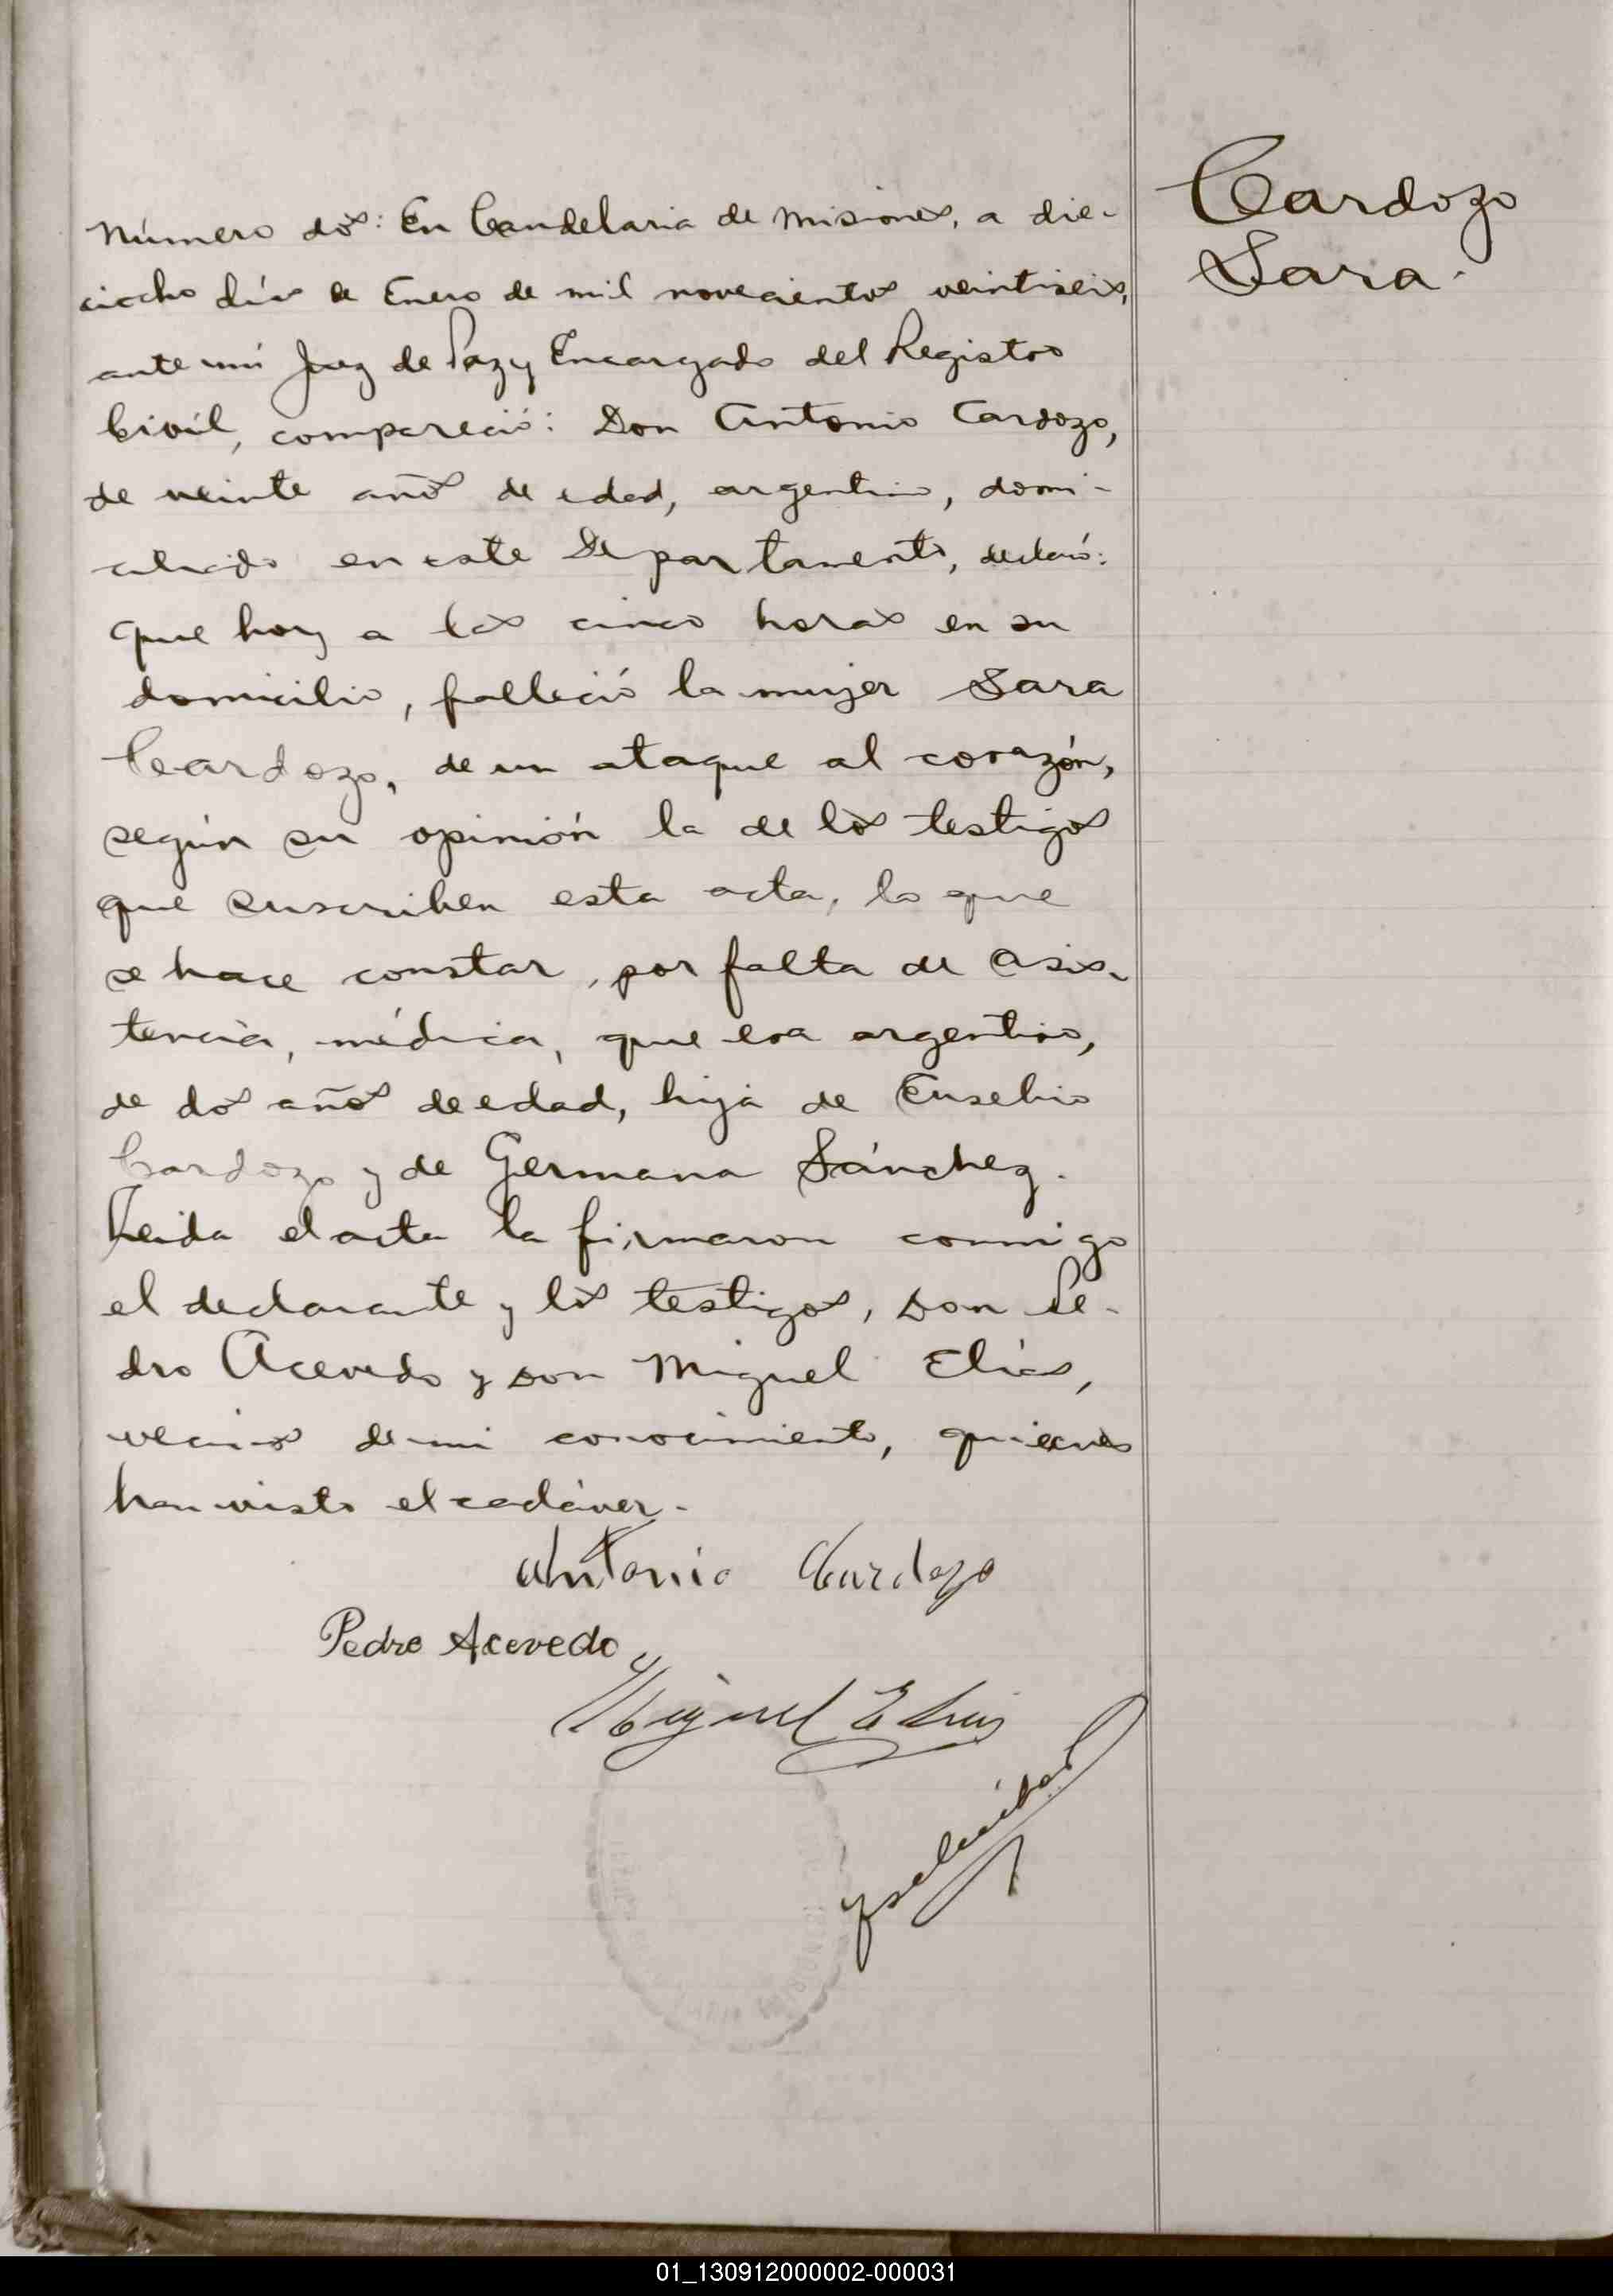 Cardozo
Sara.
Número dos: En Candelaria de Misiones, a die-
ciocho días de Enero de mil novecientos veintiseis,
ante mí Juez de Paz y Encargado del Registro
Civil, compareció: Don Antonio Cardozo,
de veinte años de edad, argentino, domi-
ciliado en este Departamento, declaró:
que hoy a las cinco horas en su
domicilio, falleció la mujer Sara
Cardozo, de un ataque al corazón,
según su opinión la de los testigos
que suscriben esta acta, lo que
se hace constar, por falta de asis-
tencia, médica, que era argentina,
de dos años de edad, hija de Eusebio
Cardozo y de Germana Sánchez.
Leida el acta la firmaron conmigo
el declarante y los testigos, Don Pe-
dro Acevedo y Don Miguel Elías,
vecinos de mi conocimiento, quienes
han visto el cadáver.-
Antonio Cardozo
Pedro Acevedo
Miguel Elias
01_130912000002-000031